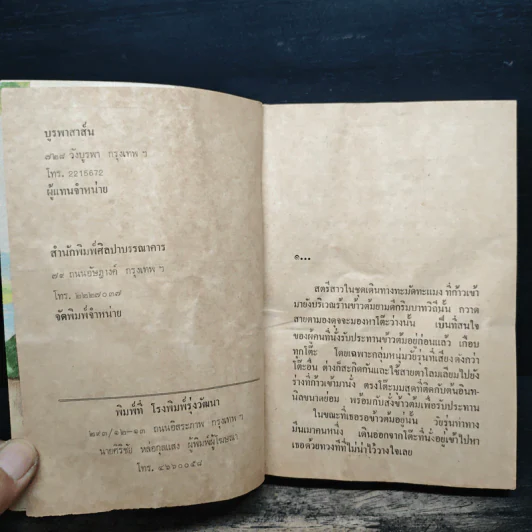 บูรพาสาส์น
๗๒๘ วังบูรพา กรุงเทพ ฯ
โทร. 2215672
ผู้แทนจำหน่าย
สำนักพิมพ์ศิลปาบรรณาคาร
๗๙ ถนนอัษฎางค์ กรุงเทพ ฯ
โทร. ๒๒๒๗๐๓๗
จัดพิมพ์จำหน่าย
พิมพ์ที่ โรงพิมพ์รุ่งวัฒนา
๒๙๓/๑๒-๑๓ ถนนอิสระภาพ กรุงเทพ ฯ
นายศิริชัย หล่อกุลแสง ผู้พิมพ์ผู้โฆษณา
โทร. ๔๖๖๐๐๕๘
๑...
สตรีสาวในชุดเดินทางทะมัดทะแมง ที่ก้าวเข้า
มายังบริเวณร้านข้าวต้มยามดึกริมบาทวิถีนั้น กวาด
สายตามองดูจะมองหาโต๊ะว่างนั้น เป็นที่สนใจ
ของผู้คนที่นั่งรับประทานข้าวต้มอยู่ก่อนแล้ว เกือบ
ทุกโต๊ะ โดยเฉพาะกลุ่มหนุ่มวัยรุ่นที่เสียงดังกว่า
โต๊ะอื่น ต่างก็สะกิดกันและใช้สายตาโลมเลียมไปยัง
ร่างที่ก้าวเข้ามานั่ง ตรงโต๊ะมุมสุดที่ติดกับต้นอินท-
นิลขนาดย่อม พร้อมกับสั่งข้าวต้มเพื่อรับประทาน
ในขณะที่เธอรอข้าวต้มอยู่นั้น วัยรุ่นท่าทาง
มึนเมาคนหนึ่ง เดินออกจากโต๊ะที่นั่งอยู่เข้าไปหา
เธอด้วยทวงทีที่ไม่น่าไว้วางใจเลย